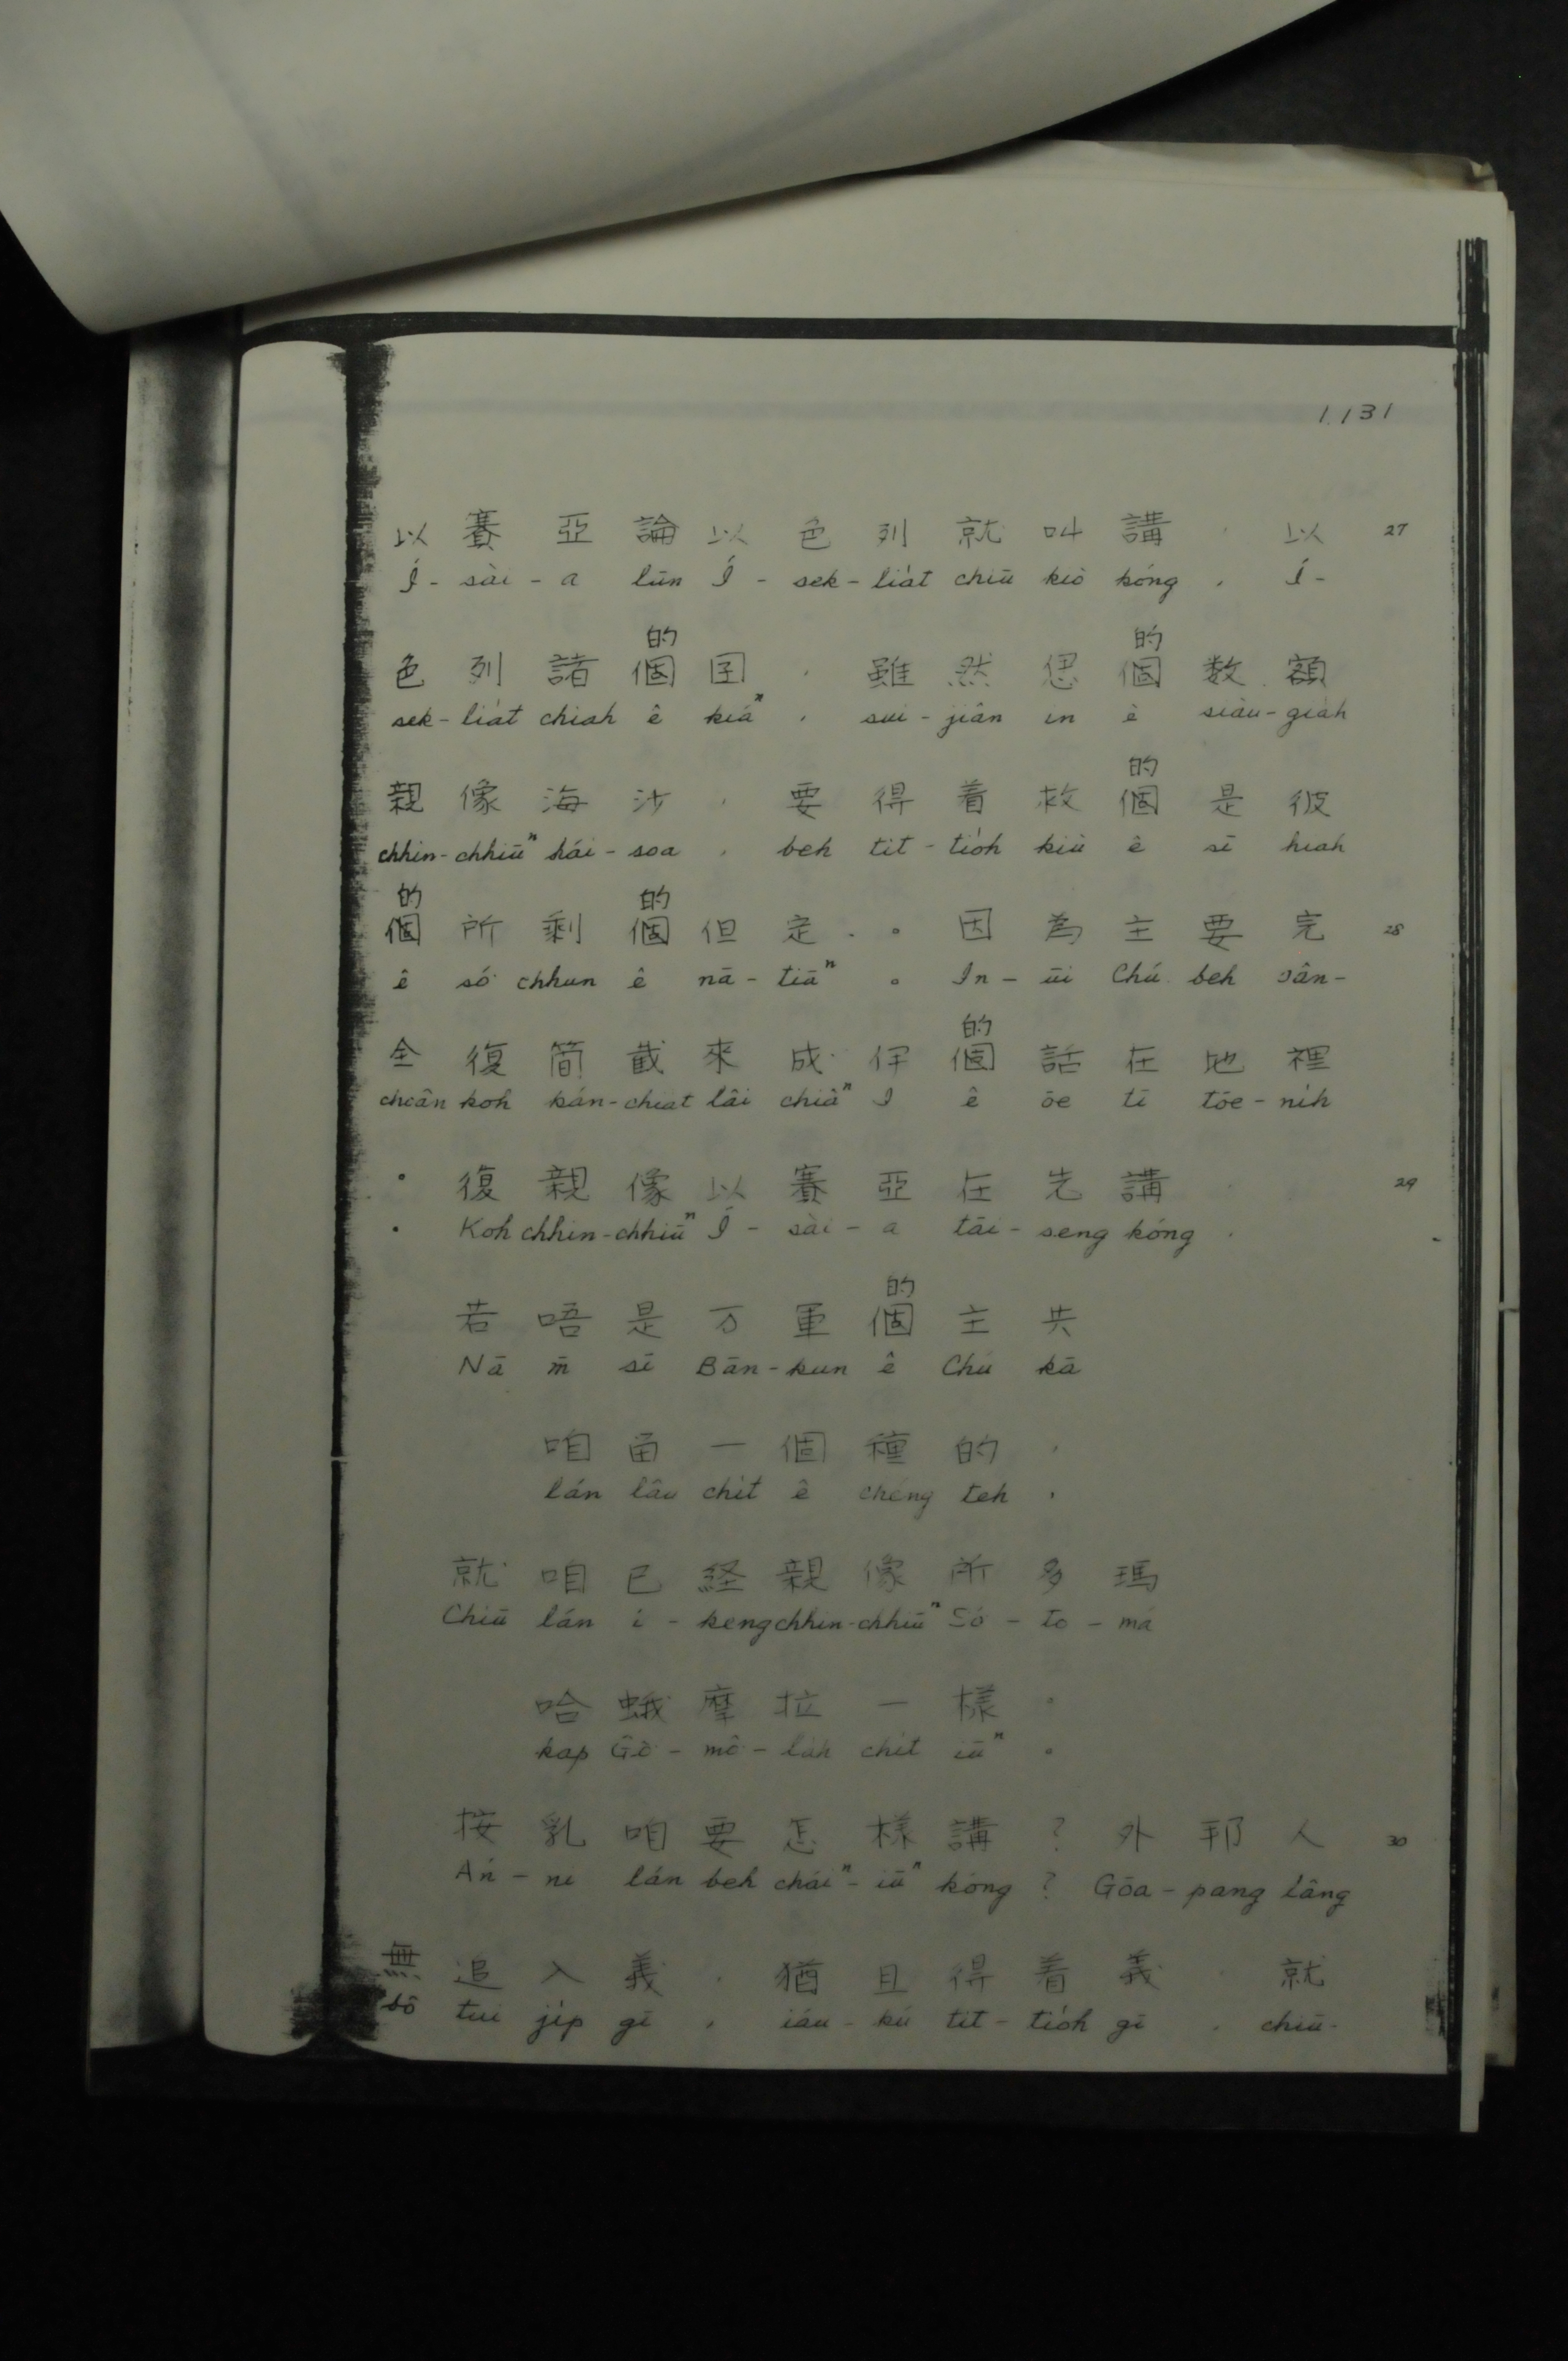 1131
以賽亞論以色列就叫講，以 27
Í-sài-a lūn Í-sek-lia̍t chiū kiò kóng, Í-
的 的
色列諸個囝，雖然偲個数額
sek-lia̍t chiah ê kiáⁿ, sui-jiân in ê siàu-gia̍h
的
親像海沙，要得着救個是彼
chhin-chhiūⁿ hái-soa, beh tit-tio̍h kiù ê sī hiah
的 的
個所剩個但定。因為主要完 28
ê só͘ chhun ê nā-tiāⁿ。In-ūi Chú beh oân-
的
全復簡截來成伊個話在地裡
choân koh kán-chiat lâi chiâⁿ I ê ōe tī tōe-ni̍h
。復親像以賽亞在先講， 29
. Koh chhin-chhiūⁿ Í-sài-a tāi-seng kóng,
的
若唔是万軍個主共
Nā m̄ sī Bān-kun ê Chú kā
咱留一個種的，
lán lâu chi̍t ê chéng teh,
就咱已経親像所多瑪
Chiū lán í-keng chhin-chhiūⁿ Só͘-to-má
哈蛾摩拉一樣。
kap Gô-mô͘-lah chi̍t iūⁿ。
按乳咱要怎樣講？外邦人 30
Án-ni lán beh cháiⁿ-iūⁿ kóng? Gōa-pang lâng
無追入義，猶且得着義，就
bô tui ji̍p gī, iáu-kú tit-tio̍h gī, chiū-